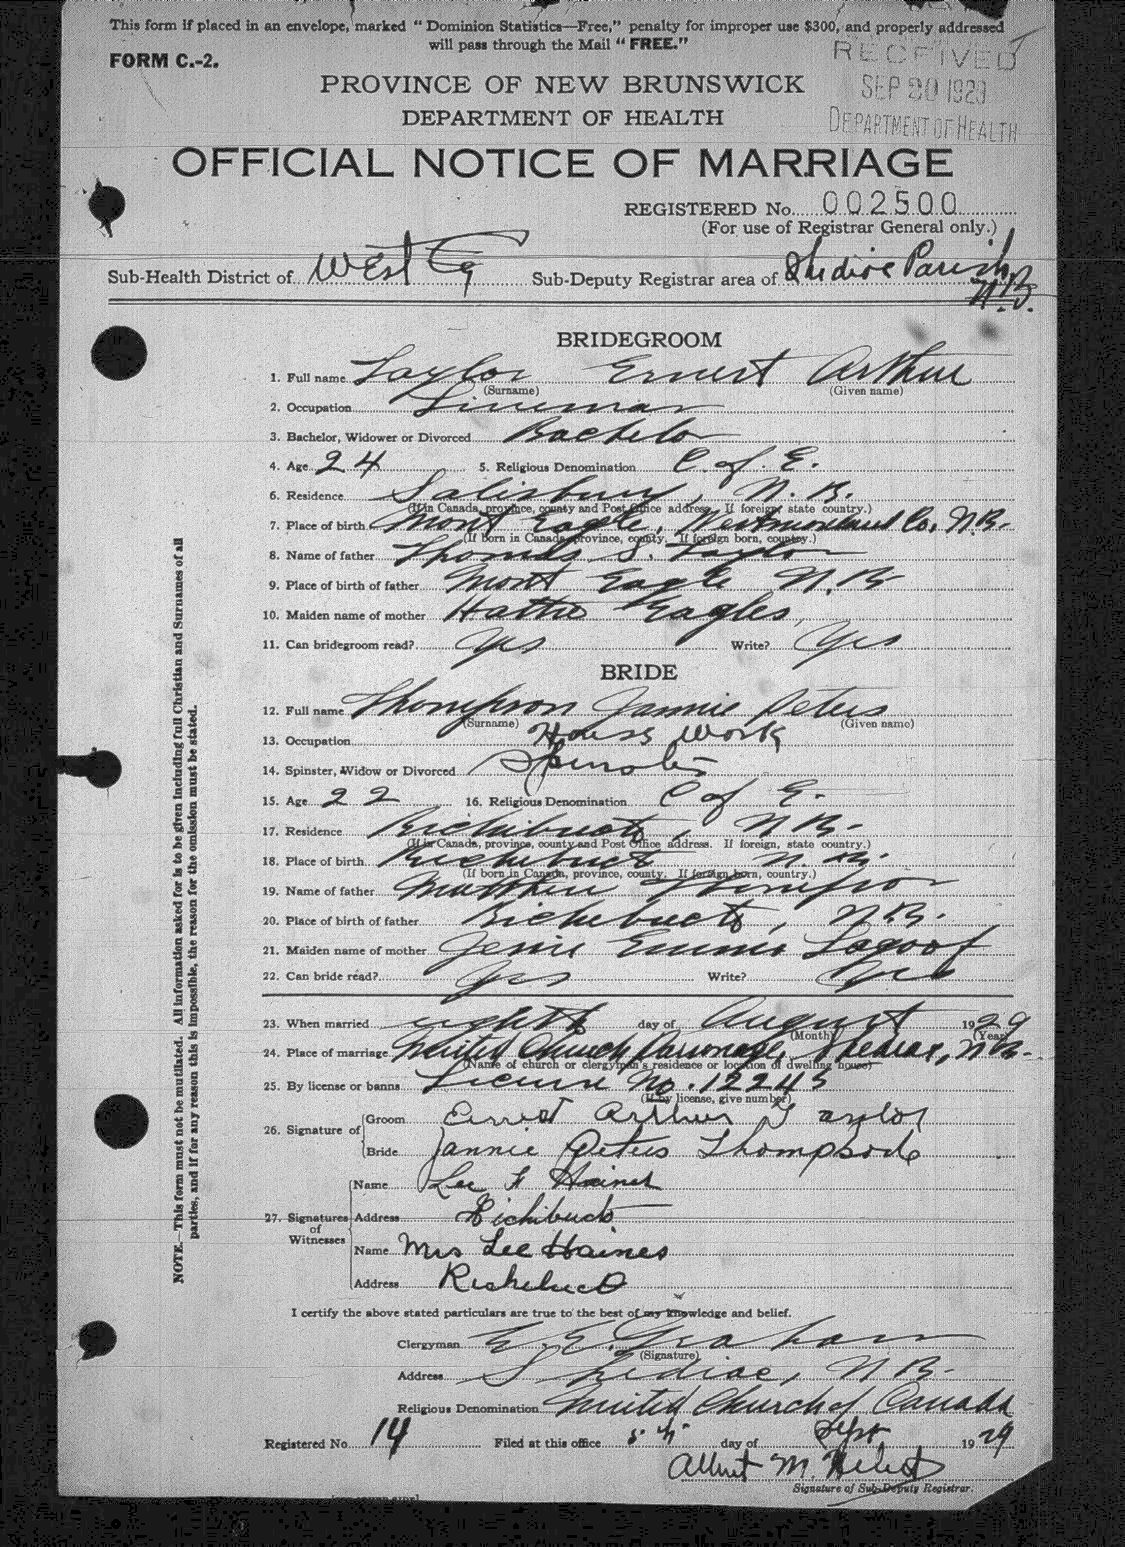 This form if placed in an envelope, marked "Dominion Statistics—Free," penalty for improper use $300, and properly addressed
will pass through the Mail "FREE."
FORM C.-2.
RECEIVED
SEP 20 1929
DEPARTMENT OF HEALTH
PROVINCE OF NEW BRUNSWICK
DEPARTMENT OF HEALTH
OFFICIAL NOTICE OF MARRIAGE
REGISTERED No. 002500
(For use of Registrar General only.)
Sub-Health District of West Sub-Deputy Registrar area of Shediac Parish
N.B.
BRIDEGROOM
1. Full name Taylor Ernest Arthur
(Surname) (Given name)
2. Occupation Lineman
3. Bachelor, Widower or Divorced Bachelor
4. Age 24 5. Religious Denomination C. of E.
6. Residence Salisbury, N.B.
(If in Canada, province, county and Post Office address. If foreign state country.)
7. Place of birth Mont Eagle, Westmorland Co, N.B.
(If born in Canada province, county. If foreign born, country.)
8. Name of father Thomas S. Taylor
9. Place of birth of father Mont Eagle N.B.
10. Maiden name of mother Hattie Eagles
11. Can bridegroom read? Yes Write? Yes
BRIDE
12. Full name Thompson Jannie Peters
(Surname) (Given name)
13. Occupation House Work
14. Spinster, Widow or Divorced Spinster
15. Age 22 16. Religious Denomination C of E.
17. Residence Richibucto, N.B.
(If in Canada, province, county and Post Office address. If foreign, state country.)
18. Place of birth Richibucto N.B.
(If born in Canada, province, county. If foreign born, country.)
19. Name of father Matthew Thompson
20. Place of birth of father Richibucto, N.B.
21. Maiden name of mother Jessie Emma
22. Can bride read? Yes Write? Yes
23. When married eighth day of August 1929
(Month) (Year)
24. Place of marriage United Church Parsonage, Shediac, N.B.
(Name of church or clergyman's residence or location of dwelling house)
25. By license or banns License No. 12245
(If by license, give number)
26. Signature of Groom Ernest Arthur Taylor
Bride Jannie Peters Thompson
27. Signatures of Witnesses Name Lee F Haines
Address Richibucto
Name Mrs Lee Haines
Address Richibucto
I certify the above stated particulars are true to the best of my knowledge and belief.
Clergyman E. E. Graham
(Signature)
Address Shediac, N.B.
Religious Denomination United Church of Canada
Registered No. 14 Filed at this office 5th day of Sept 1929
Albert M. Hebert
Signature of Sub-Deputy Registrar.
NOTE.—This form must not be mutilated. All information asked for is to be given including full Christian and Surnames of all
parties, and if for any reason this is impossible, the reason for the omission must be stated.